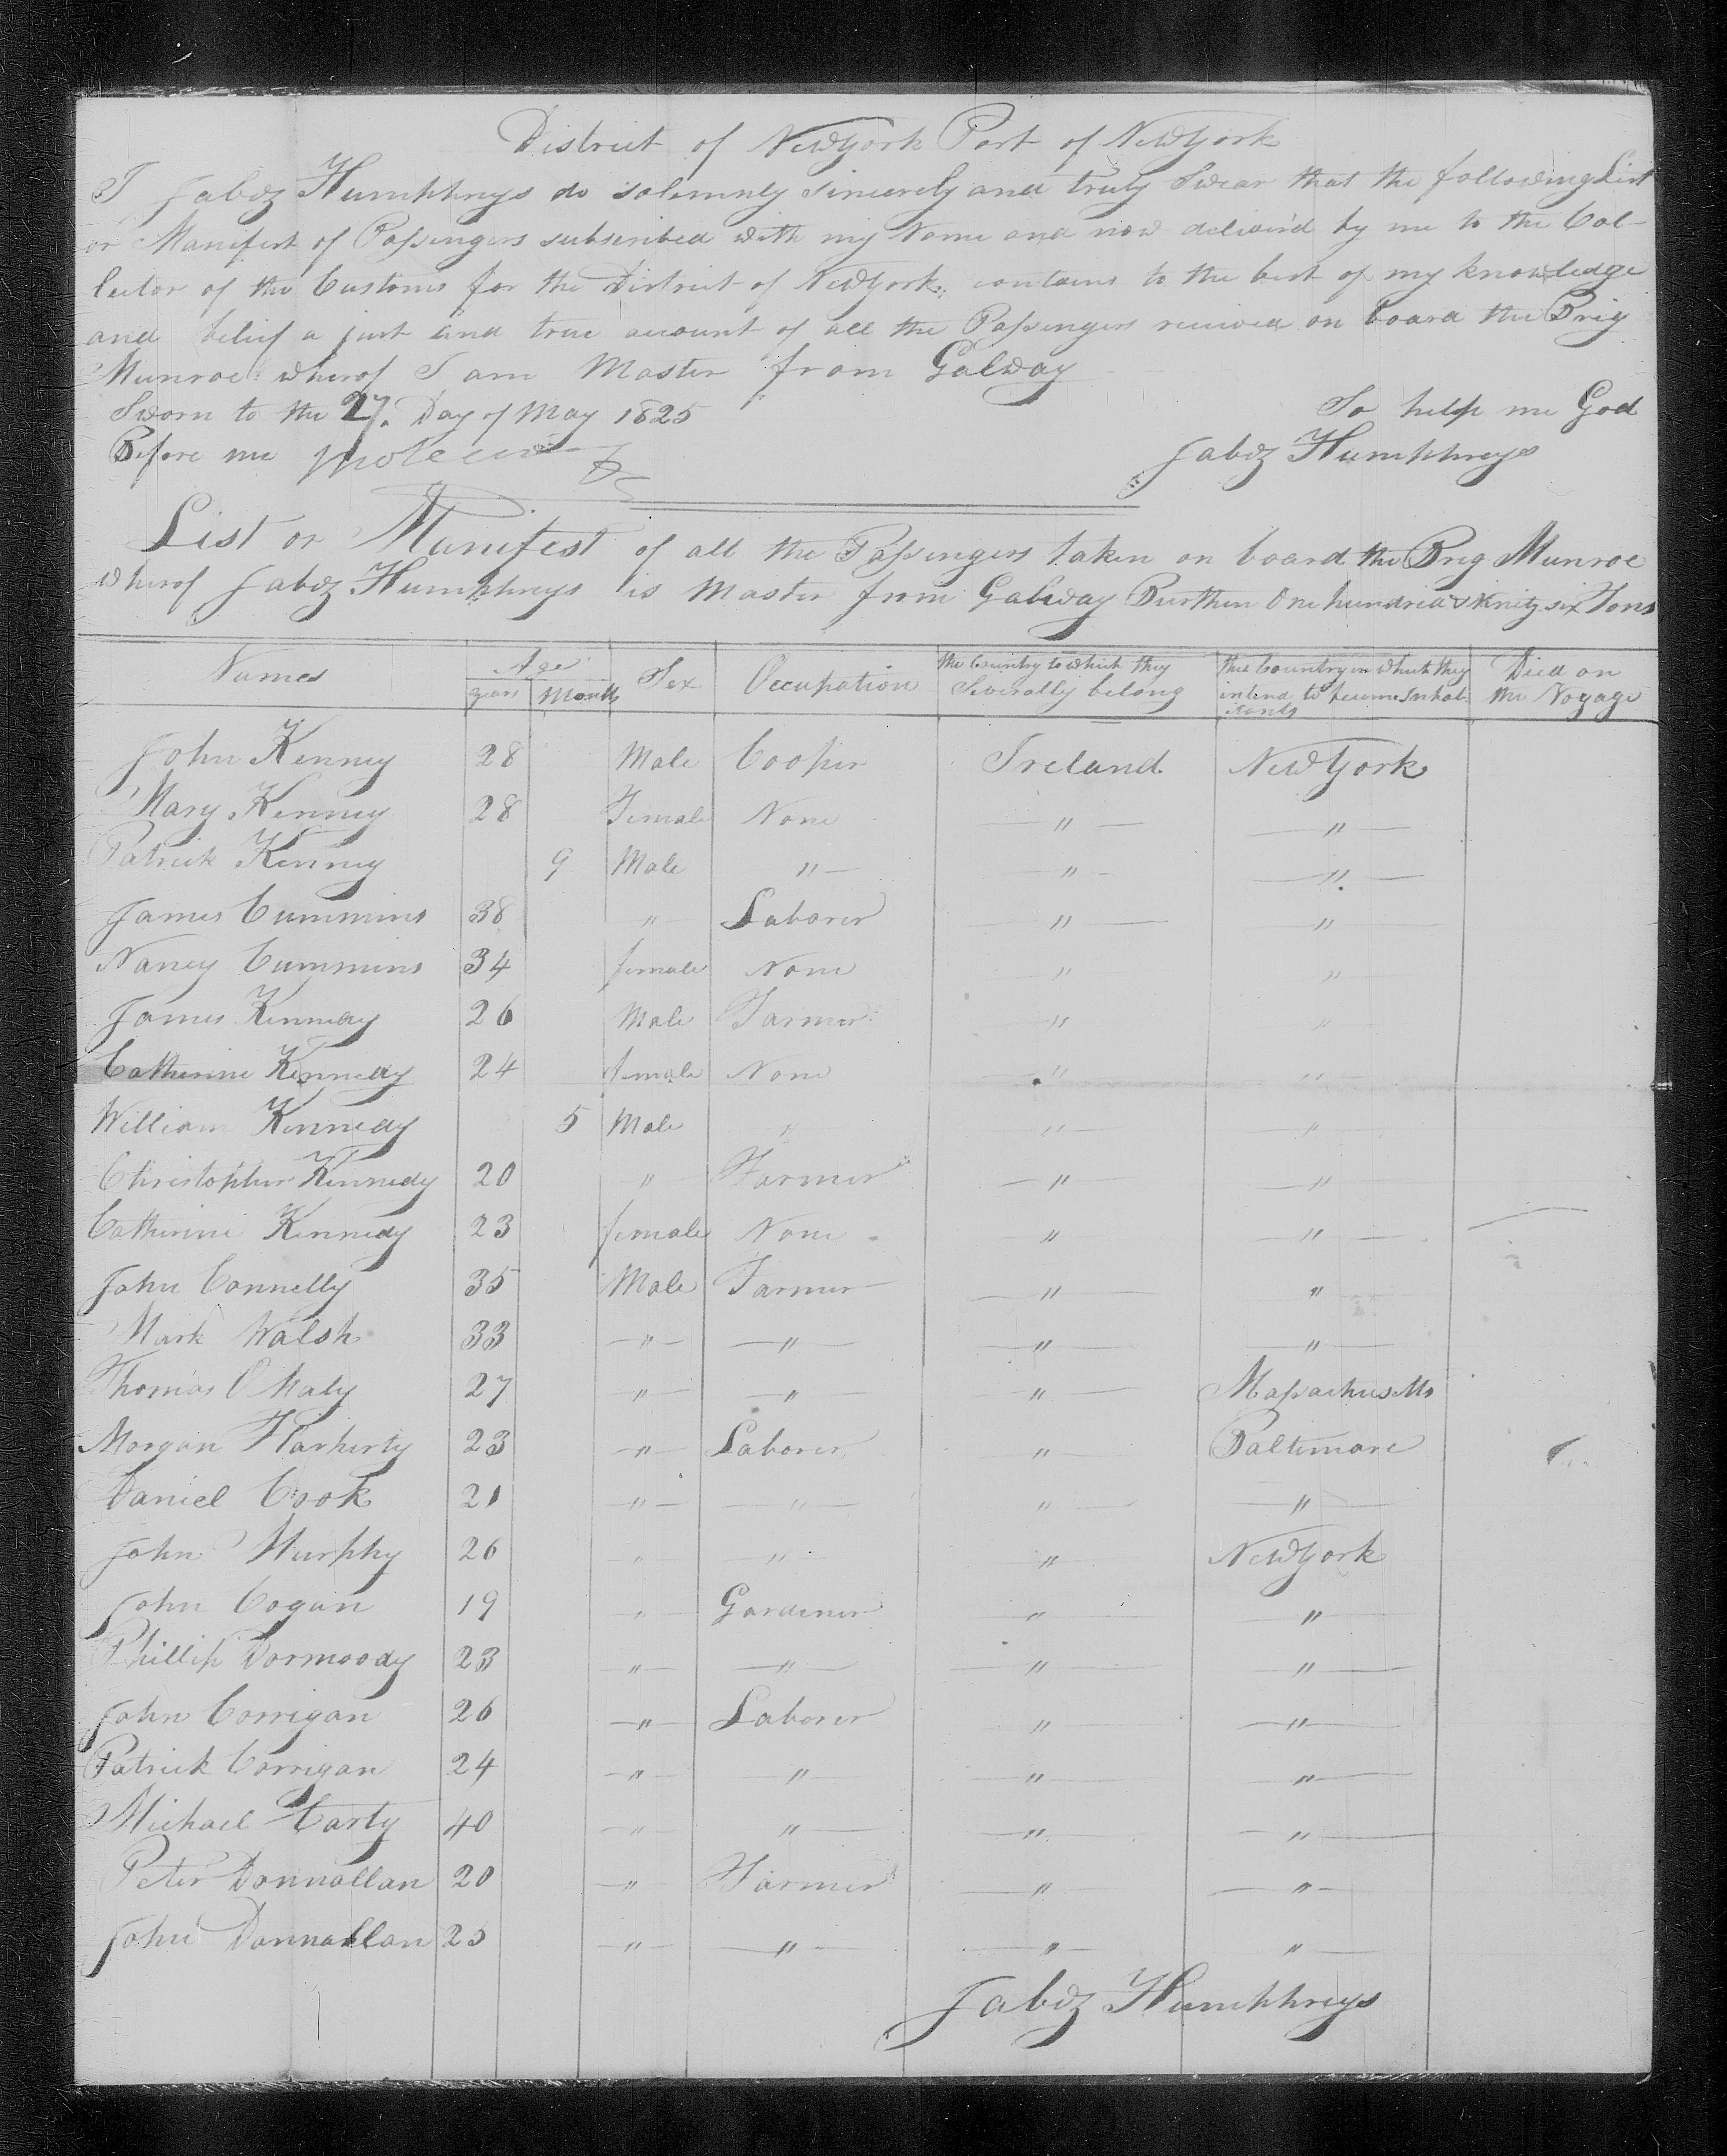 District of NewYork Port of NewYork
I Jabez Humphreys do solemnly sincerely and truly Swear that the following List
or Manifest of Passengers subscribed with my Name and now deliver'd by me to the Col-
lector of the Customs for the District of NewYork contains to the best of my knowledge
and belief a just and true account of all the Passengers received on board the Brig
Munroe wherof I am Master from Galway
Sworn to the 27. Day of May 1825
So help me God
Before me
Jabez Humphreys
List or Manifest of all the Passengers taken on board the Brig Munroe
wherof Jabez Humphreys is Master from Galway Burthen One hundred & six Tons
Names Age years Month Sex Occupation the Country to which they Severally belong the Country in which they intend to become Inhabitants Died on the Voyage
John Kenney 28 Male Cooper Ireland NewYork
Mary Kenney 28 Female None " "
Patrick Kenney 9 Male " " "
James Cummins 38 " Laborer " "
Nancy Cummins 34 female None " "
James Kennedy 26 Male Farmer " "
Catherine Kennedy 24 female None " "
William Kennedy 5 Male " " "
Christopher Kennedy 20 " Farmer " "
Catherine Kennedy 23 female None " "
John Connelly 35 Male Farmer " "
Mark Walsh 33 " " " "
Thomas O Maly 27 " " " Massachusetts
Morgan Flarherty 23 " Laborer " Baltimore
Daniel Cook 21 " " " "
John Murphy 26 " " " NewYork
John Cogan 19 " Gardener " "
Phillip Dormoody 23 " " " "
John Corrigan 26 " Laborer " "
Patrick Corrigan 24 " " " "
Michael Carty 40 " " " "
Peter Donnallan 20 " Farmer " "
John Donnallan 25 " " " "
Jabez Humphreys